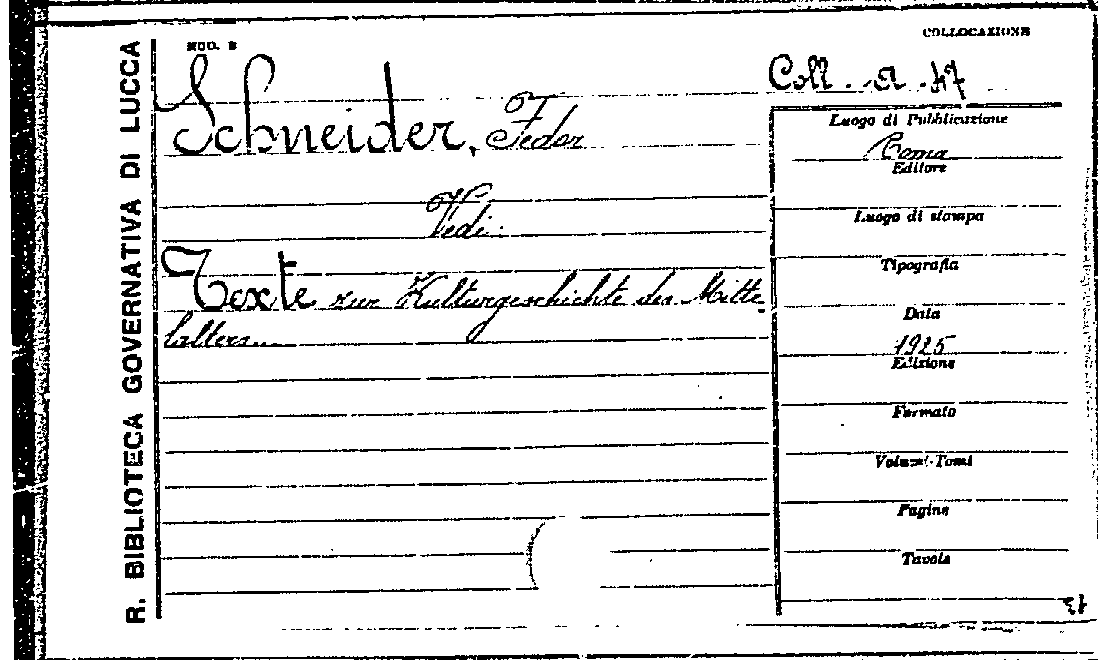 R. BIBLIOTECA GOVERNATIVA DI LUCCA
MOD. B
COLLOCAZIONE
Coll. a. 47
Schneider, Fedor
Vedi:
Texte zur Kulturgeschichte des Mitte-
lalters...
Luogo di Pubblicazione
Roma
Editore
Luogo di stampa
Tipografia
Data
1925
Edizione
Formato
Volumi-Tomi
Pagine
Tavole